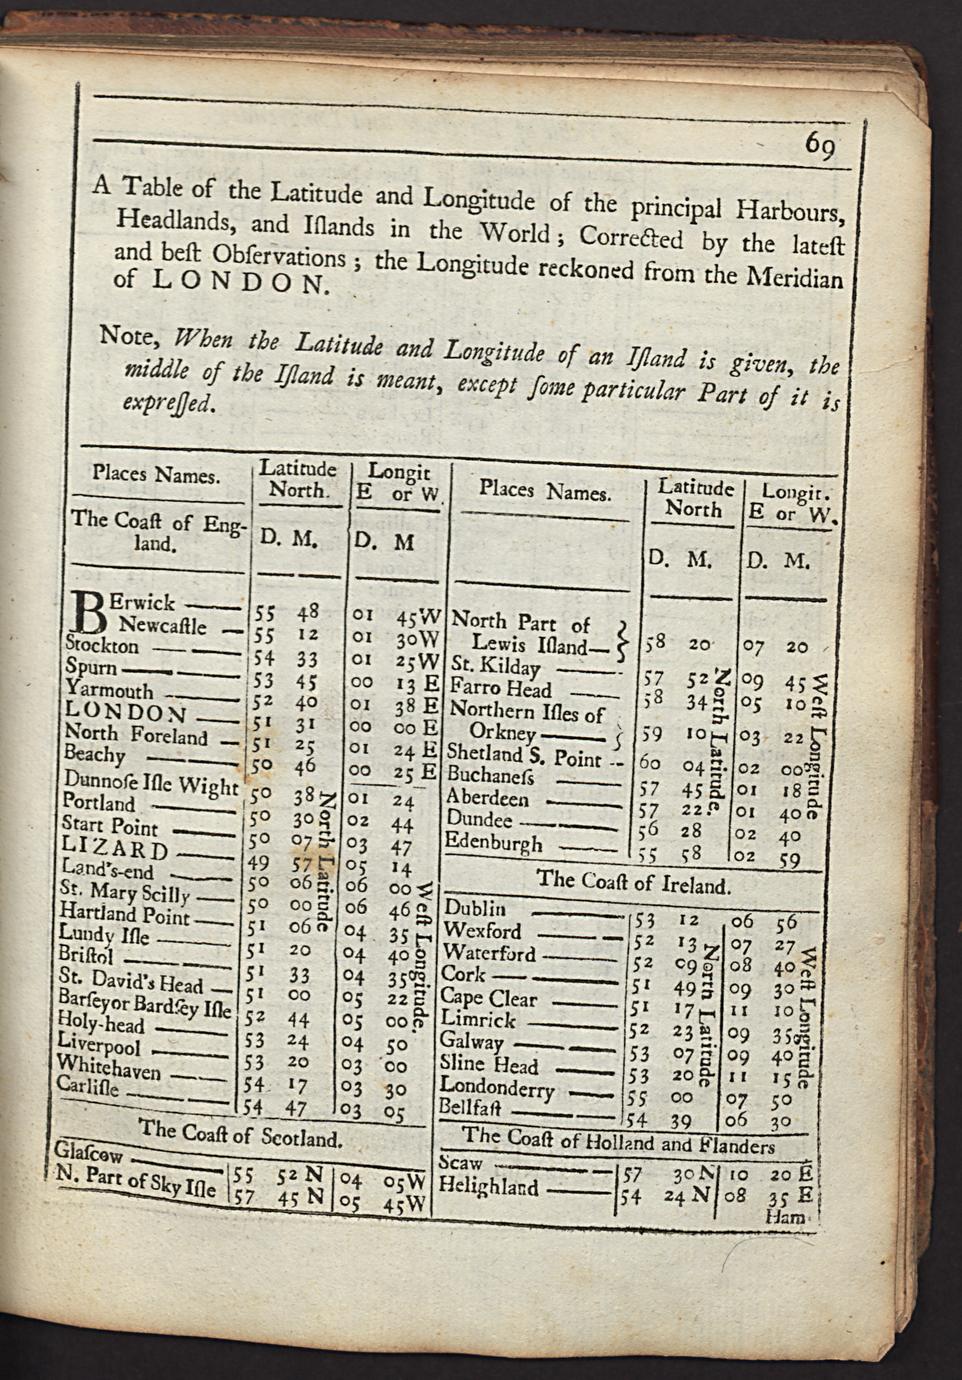 69
A Table of the Latitude and Longitude of the principal Harbours,
Headlands, and Iſlands in the World ; Corrected by the lateſt
and beſt Obſervations ; the Longitude reckoned from the Meridian
of LONDON.
Note, When the Latitude and Longitude of an Iſland is given, the
middle of the Iſland is meant, except ſome particular Part of it is
expreſſed.
Places Names. Latitude North. Longit E or W.
The Coaſt of Eng-
land.
D. M. D. M
BErwick 55 48 01 45 W
Newcaſtle 55 12 01 30 W
Stockton 54 33 01 25 W
Spurn 53 45 00 13 E
Yarmouth 52 40 01 38 E
LONDON 51 31 00 00 E
North Foreland 51 25 01 24 E
Beachy 50 46 00 25 E
Dunnoſe Iſle Wight 50 38 01 24
Portland 50 30 02 44
Start Point 50 07 03 47
LIZARD 49 57 05 14
Land's-end 50 06 06 00
St. Mary Scilly 50 00 06 46
Hartland Point 51 06 04 35
Lundy Iſle 51 20 04 40
Briſtol 51 33 04 35
St. David's Head 51 00 05 22
Barſey or Bardſey Iſle 52 44 05 00
Holy-head 53 24 04 50
Liverpool 53 20 03 00
Whitehaven 54 17 03 30
Carliſle 54 47 03 05
North Latitude
Weſt Longitude.
The Coaſt of Scotland.
Glaſcow 55 52 N 04 05 W
N. Part of Sky Iſle 57 45 N 05 45 W
Places Names. Latitude North Longit. E or W.
D. M. D. M.
North Part of
Lewis Iſland 58 20 07 20
St. Kilday 57 52 09 45
Farro Head 58 34 05 10
Northern Iſles of
Orkney 59 10 03 22
Shetland S. Point 60 04 02 00
Buchaneſs 57 45 01 18
Aberdeen 57 22 01 40
Dundee 56 28 02 40
Edenburgh 55 58 02 59
North Latitude.
Weſt Longitude
The Coaſt of Ireland.
Dublin 53 12 06 56
Wexford 52 13 07 27
Waterford 52 09 08 40
Cork 51 49 09 30
Cape Clear 51 17 11 10
Limrick 52 23 09 35
Galway 53 07 09 40
Sline Head 53 20 11 15
Londonderry 55 00 07 50
Bellfaſt 54 39 06 30
North Latitude
Weſt Longitude
The Coaſt of Holland and Flanders
Scaw 57 30 N 10 20 E
Helighland 54 24 N 08 35 E
Ham